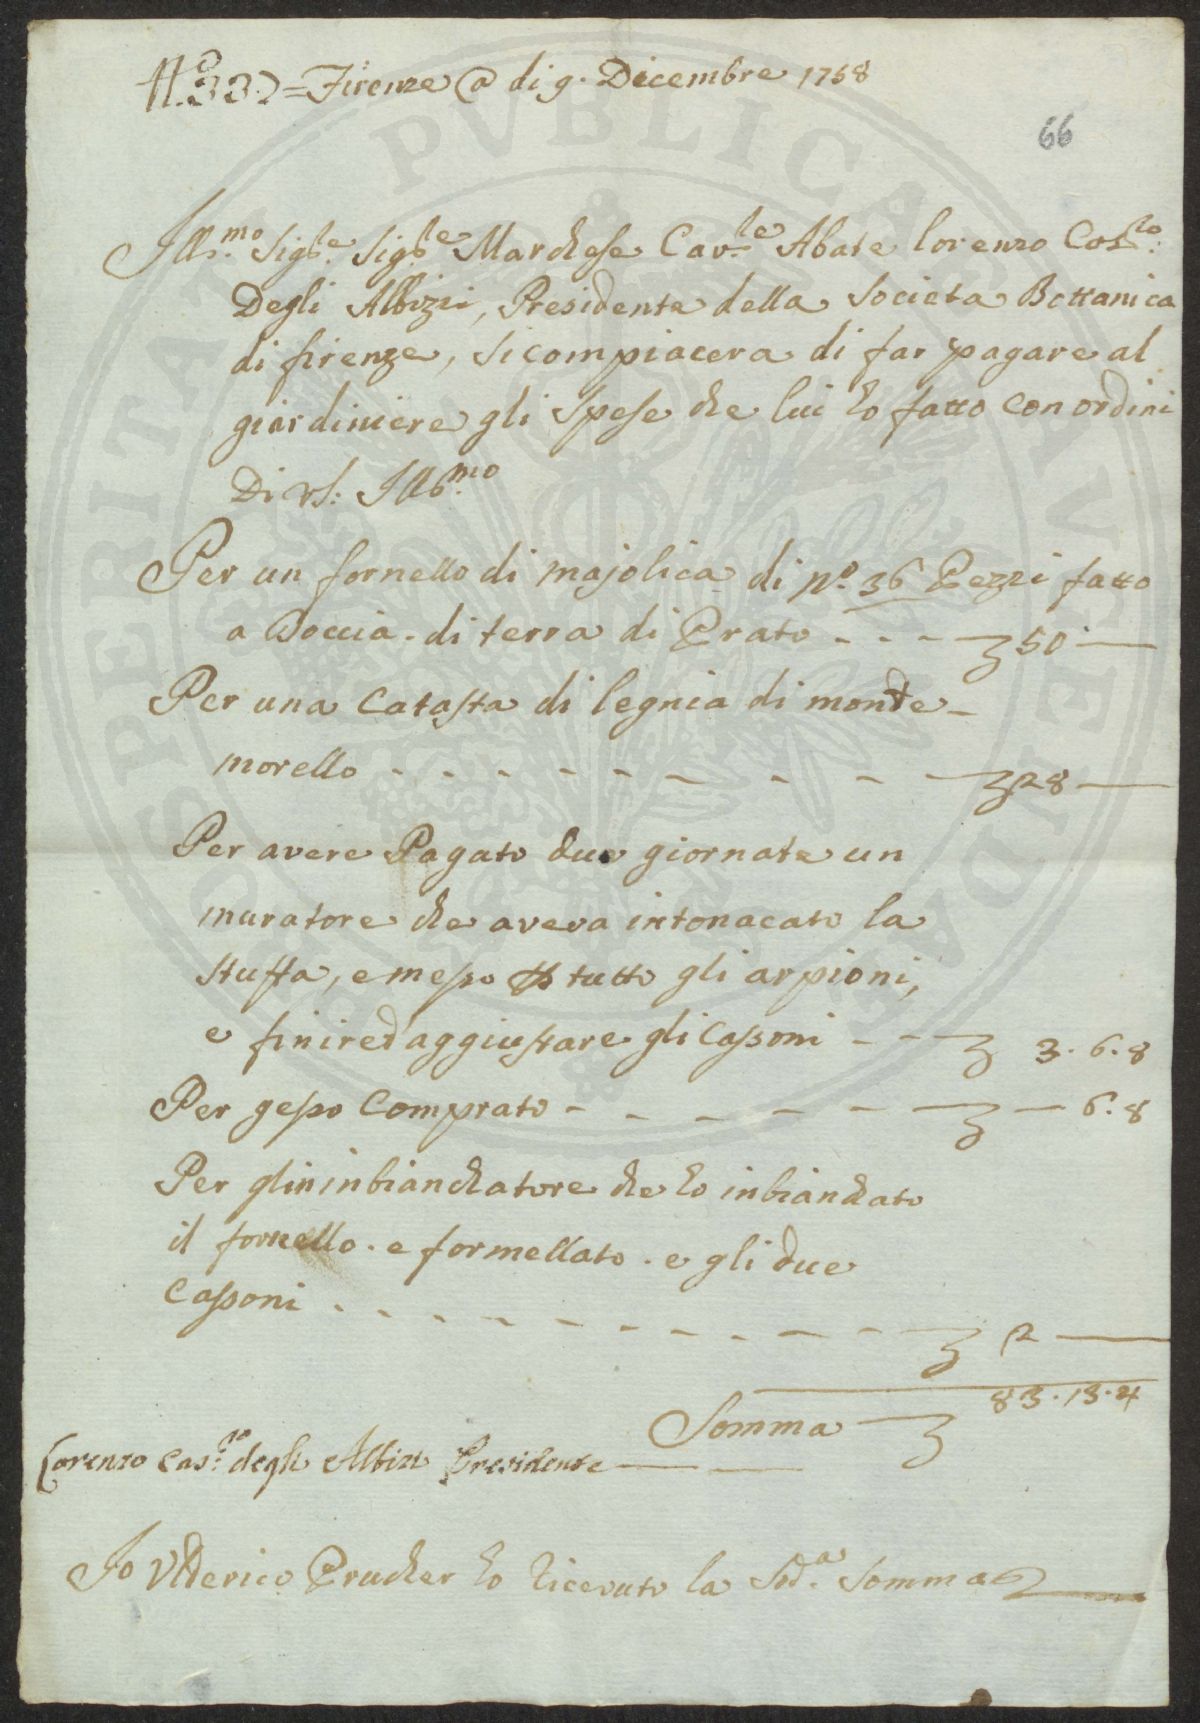 N.º 33.)=Firenze @ di 9. Dicembre 1768
66
Ill:mo Sigre. Sigre Marchese Cav:re Abate lorenzo Cos:to:
Degli Albizzi, Presidente della Societa Bottanica
di firenze, si compiacera di far pagare al
giardiniere gli Spese che lui ho fatto con ordini
Di vs: Illmo
Per un fornello di majolica di Nº 36 Pezzi fatto
a Doccia. di terra di Prato - - - 50 —
Per una Catasta di legnia di monte-
morello - - - - - - - - - 28 —
Per avere Pagato due giornate un
muratore che aveva intonacato la
stuffa, e messo tutto gli arpioni,
e finired aggiustare gli Cassoni - - 3. 6. 8
Per gesso Comprato - - - - - - — 6. 8
Per glininbianchatore che ho inbianchato
il fornello. e formellato. e gli due
Cassoni - - - - - - - - - 2 —
83. 13. 4
Somma —
Lorenzo Cas:no degli Albizi Presidente —
Io Vlderico Prucher ho ricevuto la Sod:a Somma
PROSPERITATI PVBLICAE AVGENDAE